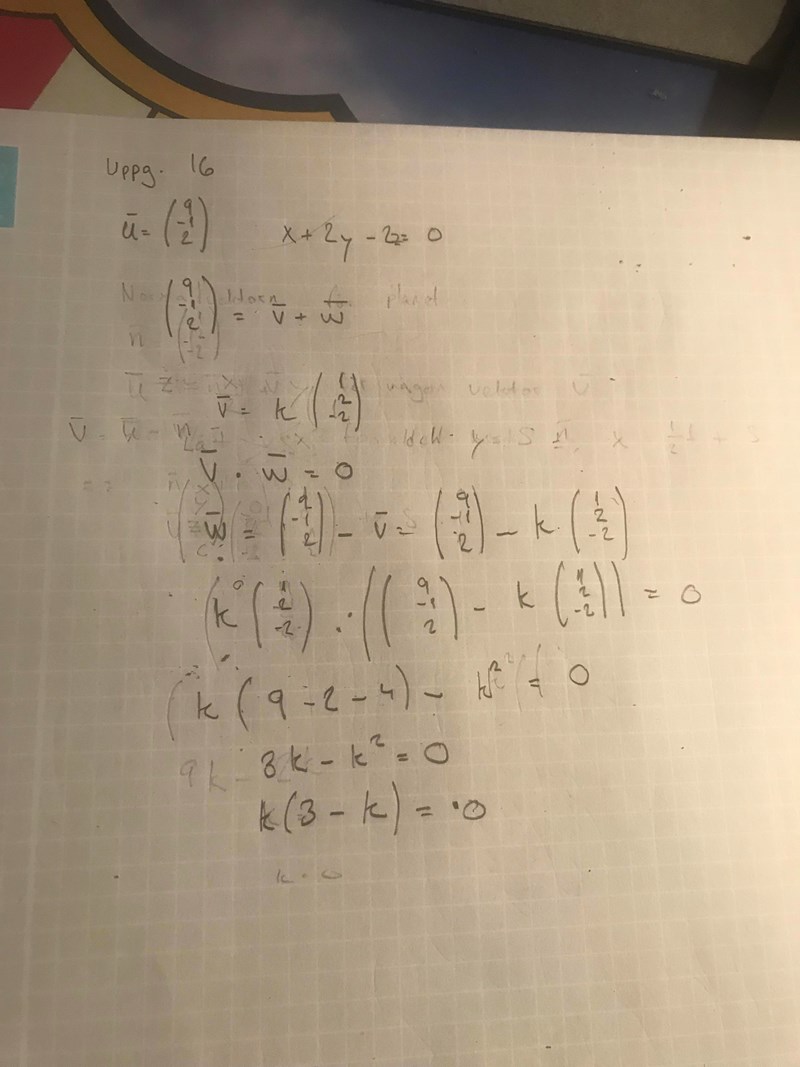 Uppg. 16
ū = (9 -1 2) x + 2y - 2z = 0
(9 -1 2) = v̄ + w̄
v̄ = k (1 2 -2)
v̄ · w̄ = 0
w̄ = (9 -1 2) - v̄ = (9 -1 2) - k · (1 2 -2)
(k (1 2 -2)) · ((9 -1 2) - k (1 2 -2)) = 0
k (9 - 2 - 4) - k² = 0
3k - k² = 0
k(3 - k) = 0